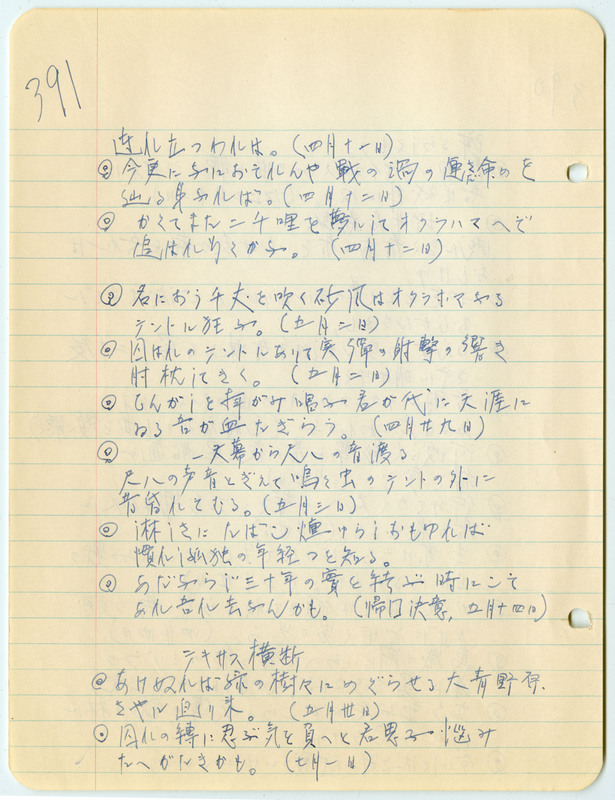 391
連れ立つわれは。(四月十一日)
◎ 今更に何におそれんや戦の渦の運命のを
辿る身なれば。(四月十二日)
◎ かくてまた二千哩を夢にてオクラハマへぞ
追はれ行くかな。(四月十二日)
◎ 名におう千丈を吹く砂風はオクラホマなる
テントに狂ふ。(五月二日)
◎ 囚はれのテントにありて実弾の射撃の響き
肘枕してきく。(五月二日)
◎ ひんがしを拝がみ唱ふ君が代に天涯に
ゐる吾が血たぎらう。(四月廿九日)
◎ ―天幕から尺八の音渡る
尺八の声音とぎえて鳴く虫のテントの外に
昔昏れそむる。(五月三日)
◎ 淋しさにたばこ燻けらしおもゆれば
慣れし孤独の年経つを知る。
◎ あだならじ三十年の實を結ぶ時にして
あれ吾れ去なんかも。(帰国決意、五月十四日)
テキサス横断
◎ あけぬれば緑の樹々にめぐらせる大青野原
さやに辺り来。(五月廿日)
◎ 囚れの縛に忍ぶ気を負へと君思ふ悩み
たへがたきかも。(七月一日)